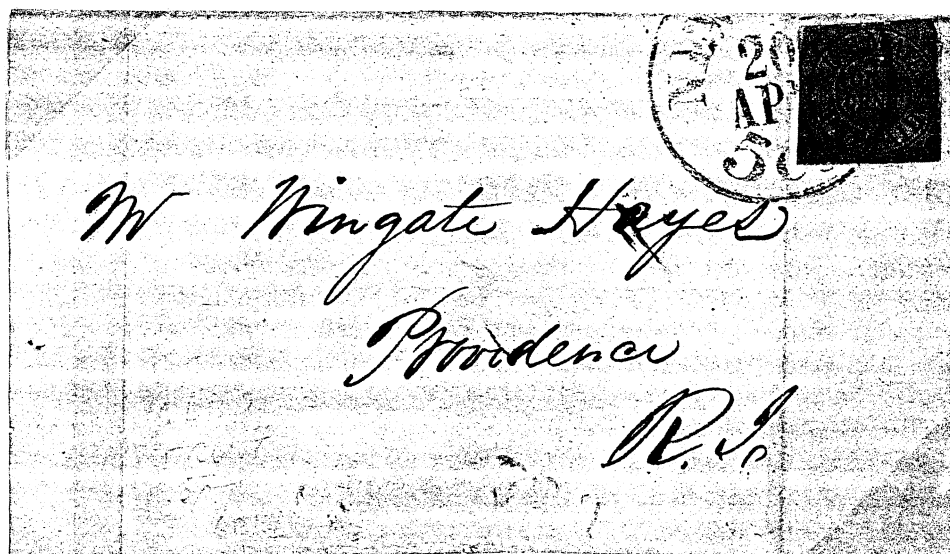 20
AP
W Wingate Hayes
Providence
R. I.